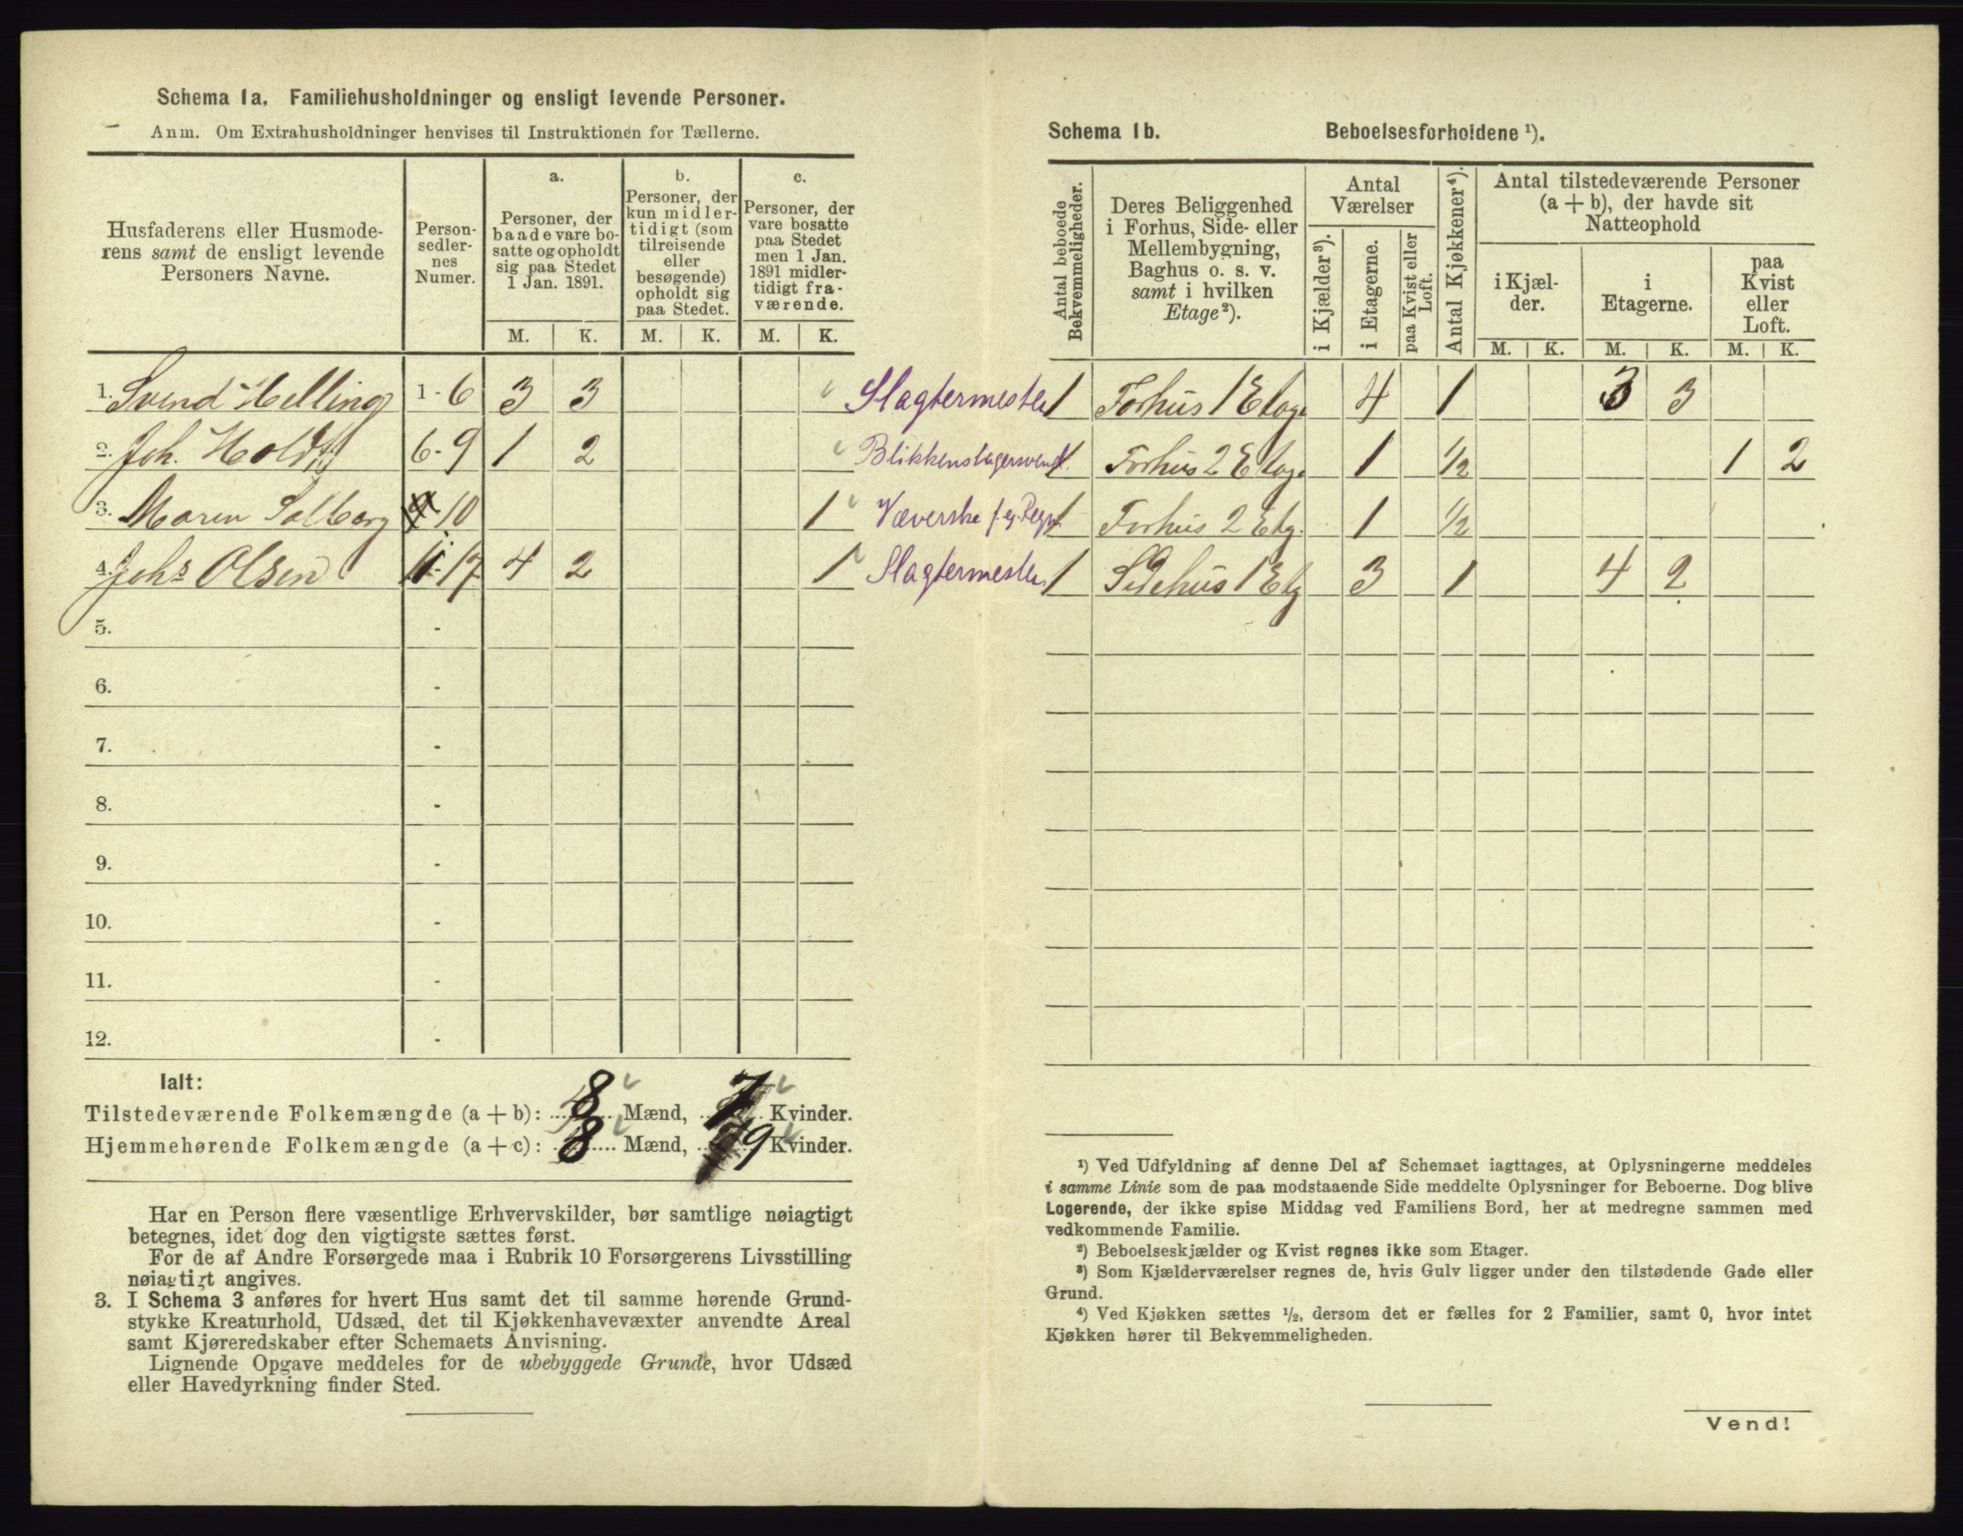 Schema 1a. Familiehusholdninger og ensligt levende Personer.
Anm. Om Extrahusholdninger henvises til Instruktionen for Tællerne.
Husfaderens eller Husmoderens samt de ensligt levende Personers Navne.
Person-sedler-nes Numer.
a. Personer, der baade vare bosatte og opholdt sig paa Stedet 1 Jan. 1891.
b. Personer, der kun midlertidigt (som tilreisende eller besøgende) opholdt sig paa Stedet.
c. Personer, der vare bosatte paa Stedet men 1 Jan. 1891 midlertidigt fraværende.
M. K. M. K. M. K.
1. Svend Helling 1-6 3 3 Slagtermester
2. Joh. Holdt 6-9 1 2 Blikkenslagersvend
3. Maren Solberg 10 1 Væverske f. eg. Regn.
4. Johs Olsen 11-17 4 2 1 Slagtermester
5. -
6. -
7. -
8. -
9. -
10. -
11. -
12. -
Ialt:
Tilstedeværende Folkemængde (a + b): 8 Mænd, 7 Kvinder.
Hjemmehørende Folkemængde (a + c): 8 Mænd, 9 Kvinder.
Har en Person flere væsentlige Erhvervskilder, bør samtlige nøiagtigt
betegnes, idet dog den vigtigste sættes først.
For de af Andre Forsørgede maa i Rubrik 10 Forsørgerens Livsstilling
nøiagtigt angives.
3. I Schema 3 anføres for hvert Hus samt det til samme hørende Grund-
stykke Kreaturhold, Udsæd, det til Kjøkkenhavevæxter anvendte Areal
samt Kjøreredskaber efter Schemaets Anvisning.
Lignende Opgave meddeles for de ubebyggede Grunde, hvor Udsæd
eller Havedyrkning finder Sted.
Schema 1b. Beboelsesforholdene ¹).
Antal beboede Bekvemmeligheder.
Deres Beliggenhed i Forhus, Side- eller Mellembygning, Baghus o. s. v. samt i hvilken Etage²).
Antal Værelser
i Kjælder³).
i Etagerne.
paa Kvist eller Loft.
Antal Kjøkkener⁴).
Antal tilstedeværende Personer (a + b), der havde sit Natteophold
i Kjælder.
i Etagerne.
paa Kvist eller Loft.
M. K. M. K. M. K.
1 Forhus 1 Etage 4 1 3 3
1 Forhus 2 Etage 1 ½ 1 2
1 Forhus 2 Etg. 1 ½
1 Sidehus 1 Etg 3 1 4 2
¹) Ved Udfyldning af denne Del af Schemaet iagttages, at Oplysningerne meddeles
i samme Linie som de paa modstaaende Side meddelte Oplysninger for Beboerne. Dog blive
Logerende, der ikke spise Middag ved Familiens Bord, her at medregne sammen med
vedkommende Familie.
²) Beboelseskjælder og Kvist regnes ikke som Etager.
³) Som Kjælderværelser regnes de, hvis Gulv ligger under den tilstødende Gade eller
Grund.
⁴) Ved Kjøkken sættes ½, dersom det er fælles for 2 Familier, samt 0, hvor intet
Kjøkken hører til Bekvemmeligheden.
Vend!